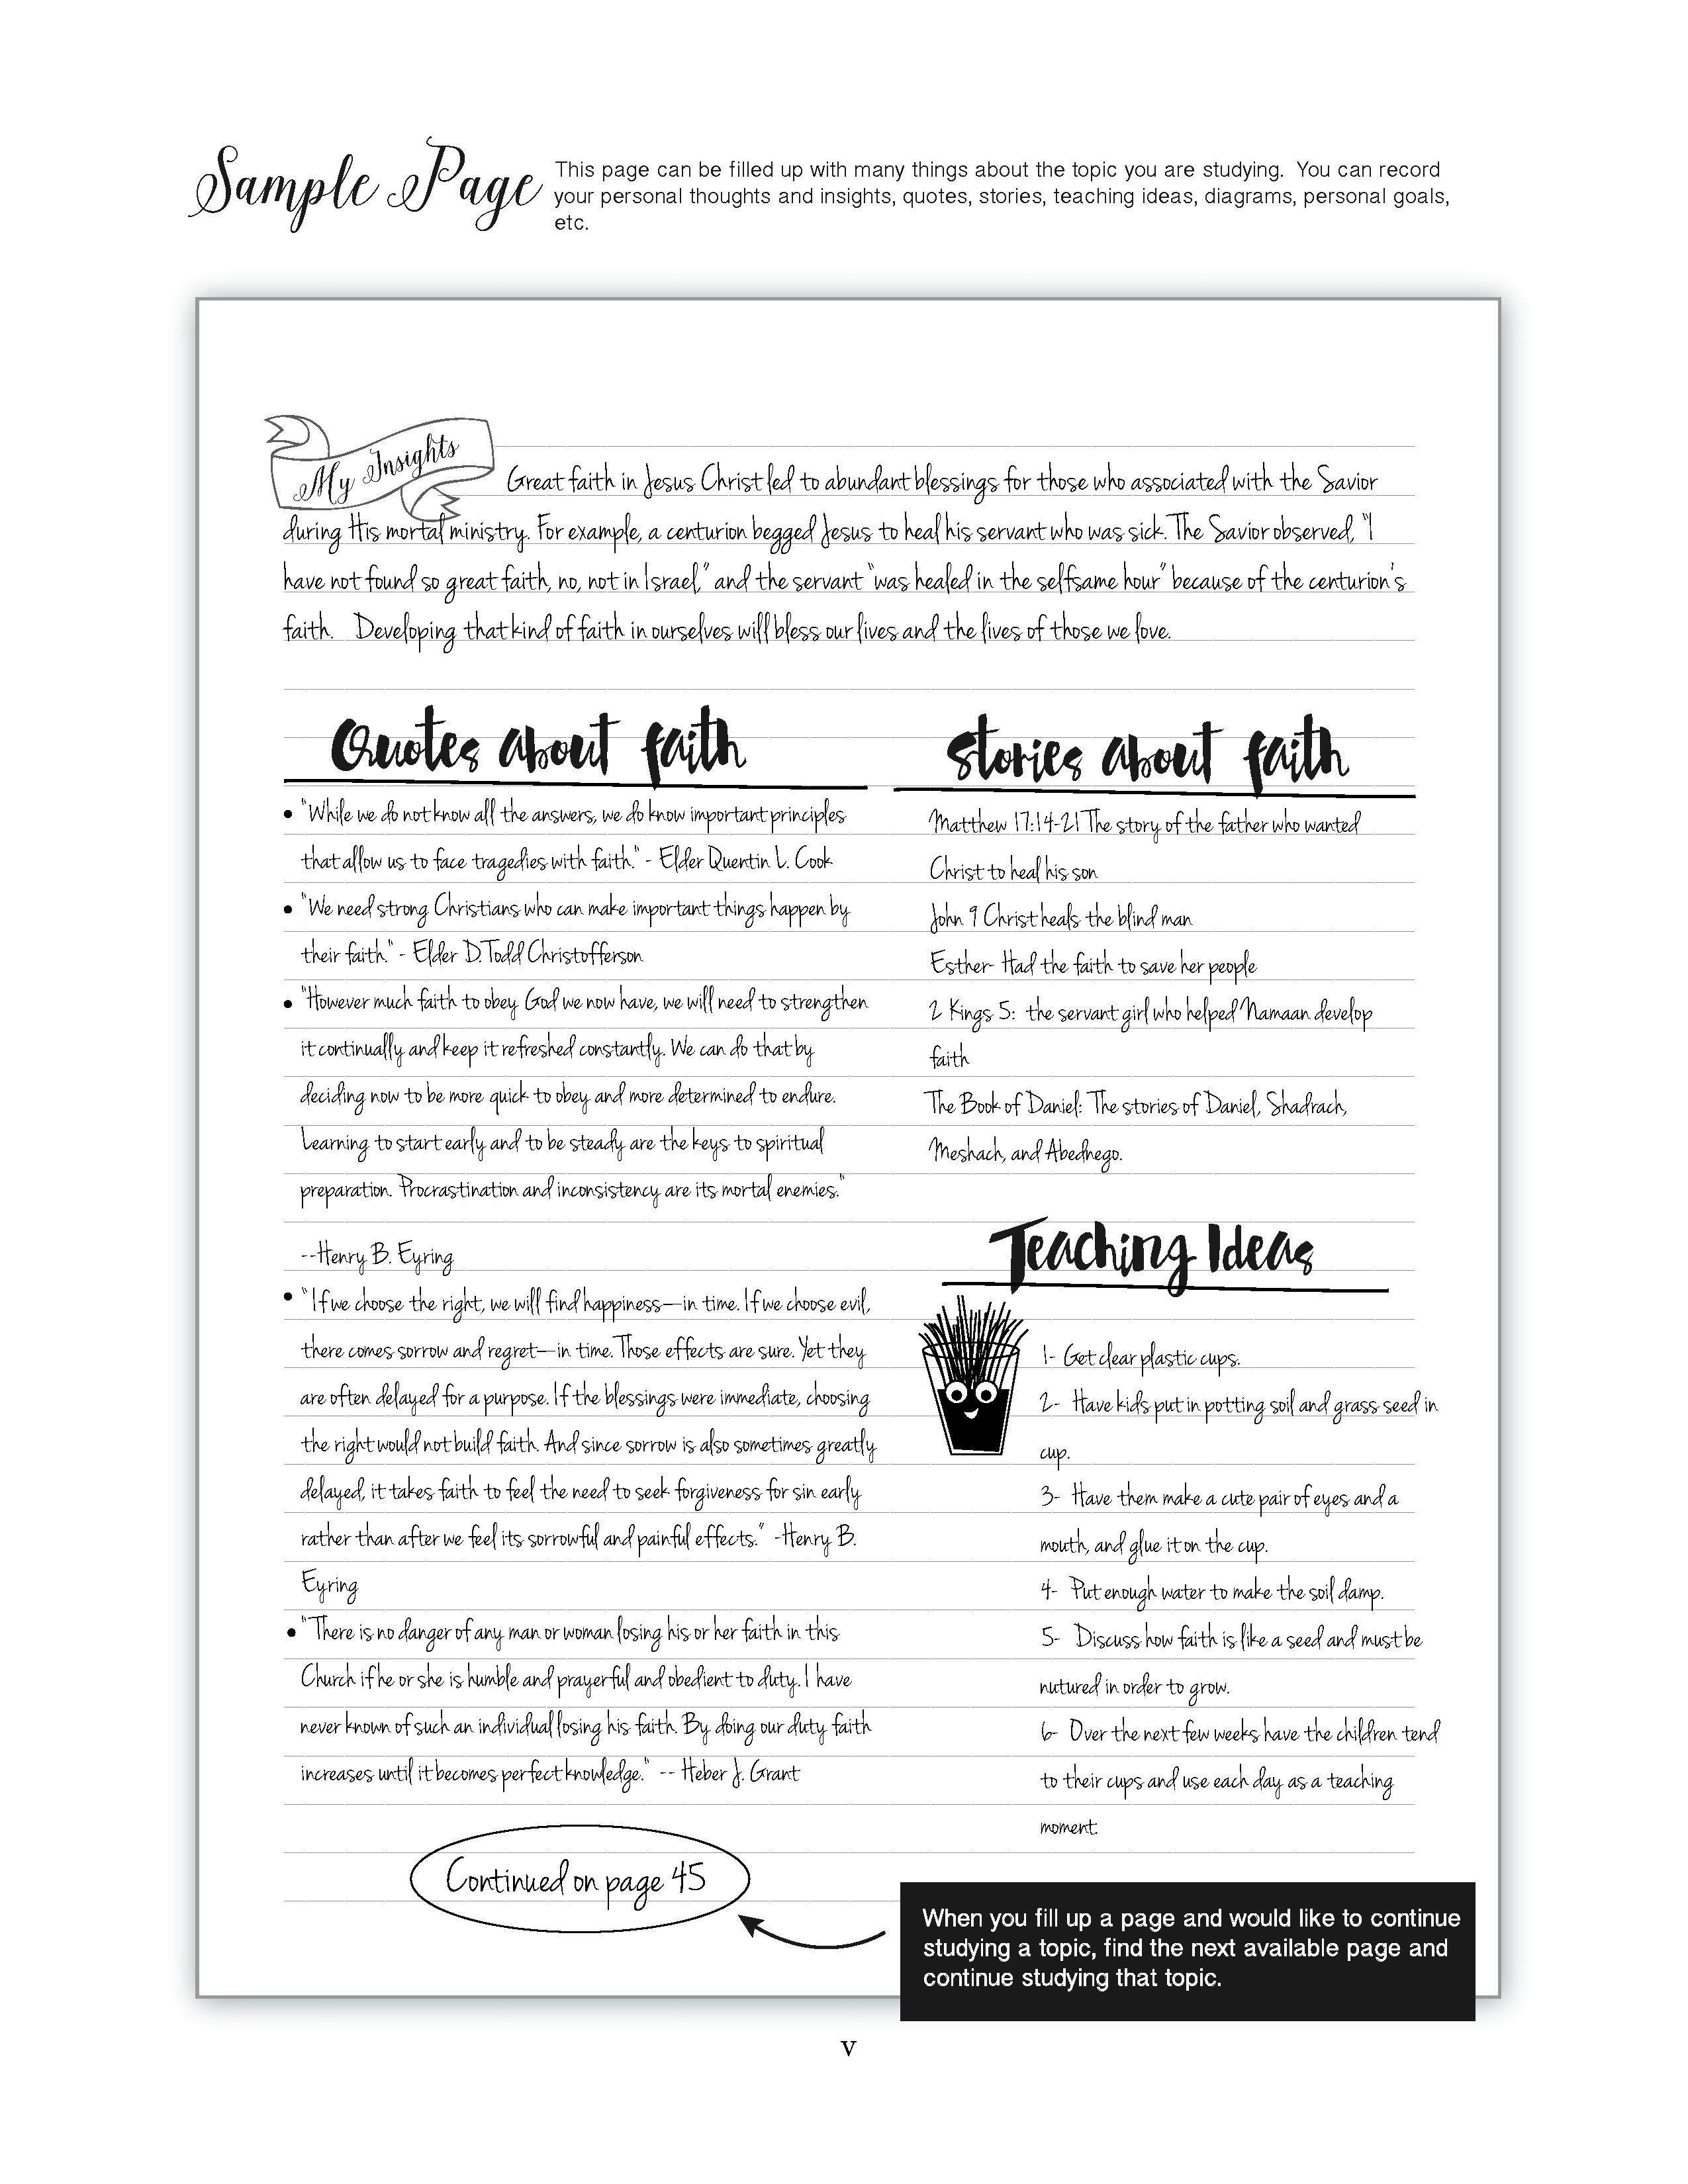 Sample Page
This page can be filled up with many things about the topic you are studying.  You can record
your personal thoughts and insights, quotes, stories, teaching ideas, diagrams, personal goals,
etc.
My Insights
Great faith in Jesus Christ led to abundant blessings for those who associated with the Savior
during His mortal ministry. For example, a centurion begged Jesus to heal his servant who was sick. The Savior observed, "I
have not found so great faith, no, not in Israel," and the servant "was healed in the selfsame hour" because of the centurion's
faith.   Developing that kind of faith in ourselves will bless our lives and the lives of those we love.
Quotes about faith
• "While we do not know all the answers, we do know important principles
that allow us to face tragedies with faith." - Elder Quentin L. Cook
• "We need strong Christians who can make important things happen by
their faith." - Elder D. Todd Christofferson
• "However much faith to obey God we now have, we will need to strengthen
it continually and keep it refreshed constantly. We can do that by
deciding now to be more quick to obey and more determined to endure.
Learning to start early and to be steady are the keys to spiritual
preparation. Procrastination and inconsistency are its mortal enemies."
--Henry B. Eyring
• "If we choose the right, we will find happiness—in time. If we choose evil,
there comes sorrow and regret—in time. Those effects are sure. Yet they
are often delayed for a purpose. If the blessings were immediate, choosing
the right would not build faith. And since sorrow is also sometimes greatly
delayed, it takes faith to feel the need to seek forgiveness for sin early
rather than after we feel its sorrowful and painful effects." -Henry B.
Eyring
• "There is no danger of any man or woman losing his or her faith in this
Church if he or she is humble and prayerful and obedient to duty. I have
never known of such an individual losing his faith. By doing our duty faith
increases until it becomes perfect knowledge." -- Heber J. Grant
Continued on page 45
Stories about faith
Matthew 17:14-21 The story of the father who wanted
Christ to heal his son
John 9 Christ heals the blind man
Esther- Had the faith to save her people
2 Kings 5:  the servant girl who helped Namaan develop
faith
The Book of Daniel: The stories of Daniel, Shadrach,
Meshach, and Abednego.
Teaching Ideas
1- Get clear plastic cups.
2-  Have kids put in potting soil and grass seed in
cup.
3-  Have them make a cute pair of eyes and a
mouth, and glue it on the cup.
4-  Put enough water to make the soil damp.
5-  Discuss how faith is like a seed and must be
nutured in order to grow.
6-  Over the next few weeks have the children tend
to their cups and use each day as a teaching
moment.
When you fill up a page and would like to continue
studying a topic, find the next available page and
continue studying that topic.
v